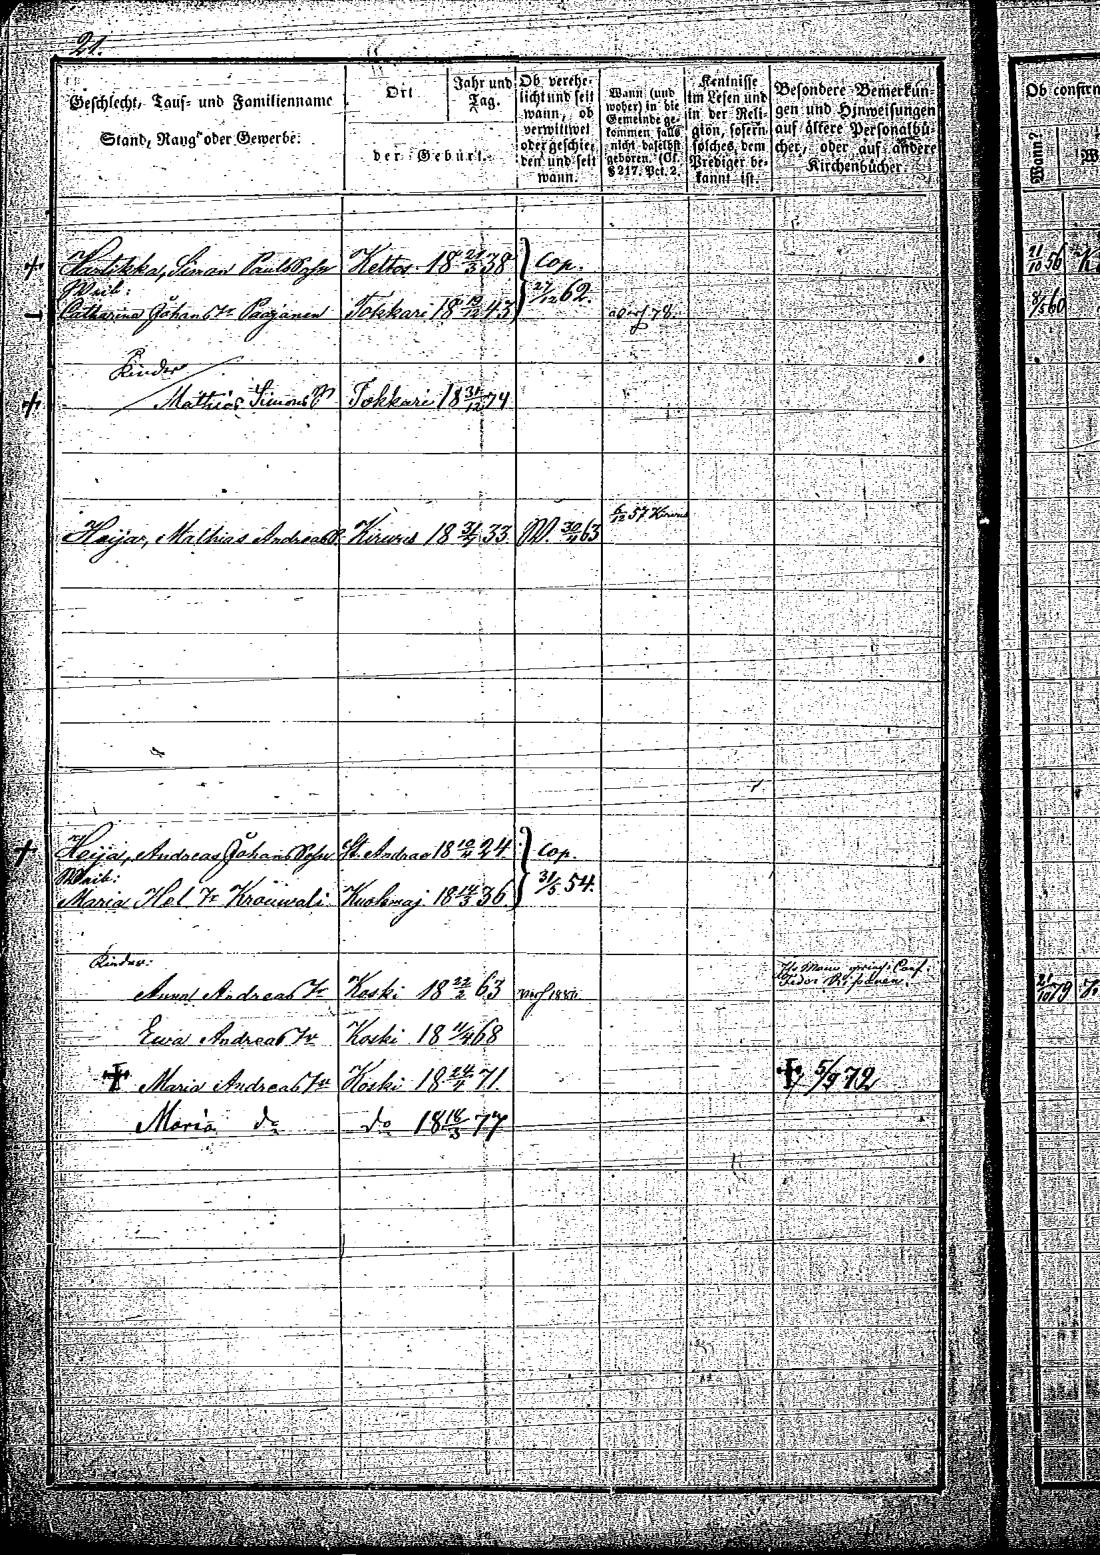 21.
Geschlecht, Tauf- und Familienname
Stand, Rang oder Gewerbe.
Ort
Jahr und Tag.
der Geburt.
Ob verehe-
licht und seit
wann, ob
verwittwet
oder geschie-
den und seit
wann.
Wann (und
woher) in die
Gemeinde ge-
kommen falls
nicht daselbst
geboren. (Cf.
§ 217. Pct. 2.
Kentnisse
im Lesen und
in der Reli-
gion, sofern
solches, dem
Prediger be-
kannt ist.
Besondere Bemerkun-
gen und Hinweisungen
auf ältere Personalbü-
cher, oder auf andere
Kirchenbücher.
Ob confirm
Wann?
+ Hartikka, Simon Pauls Sohn Keltos 18 21/3 38 Cop. 11/10 56
Weib: 27/12 62.
Catharina Johans Tr Paajanen Tokkari 18 19/12 43 78. 8/5 60
Kinder
+ Mathias Simons Tokkari 18 31/12 74
Heija, Mathias Andreas S. 18 31/7 33 W. 30/4 63 6/12 57
+ Heija, Andreas Johans Sohn St. Andreae 18 10/4 24 Cop.
Weib: 31/5 54.
Maria Hel Tr Kuolemaj. 18 14/3 36
Kinder:
Anna Andreas Tr Koski 18 22/2 63 21/10 79
Ewa Andreas Tr Koski 18 11/4 68
Maria Andreas Tr Koski 18 24/4 71 5/9 72
Maria do do 18 18/3 77